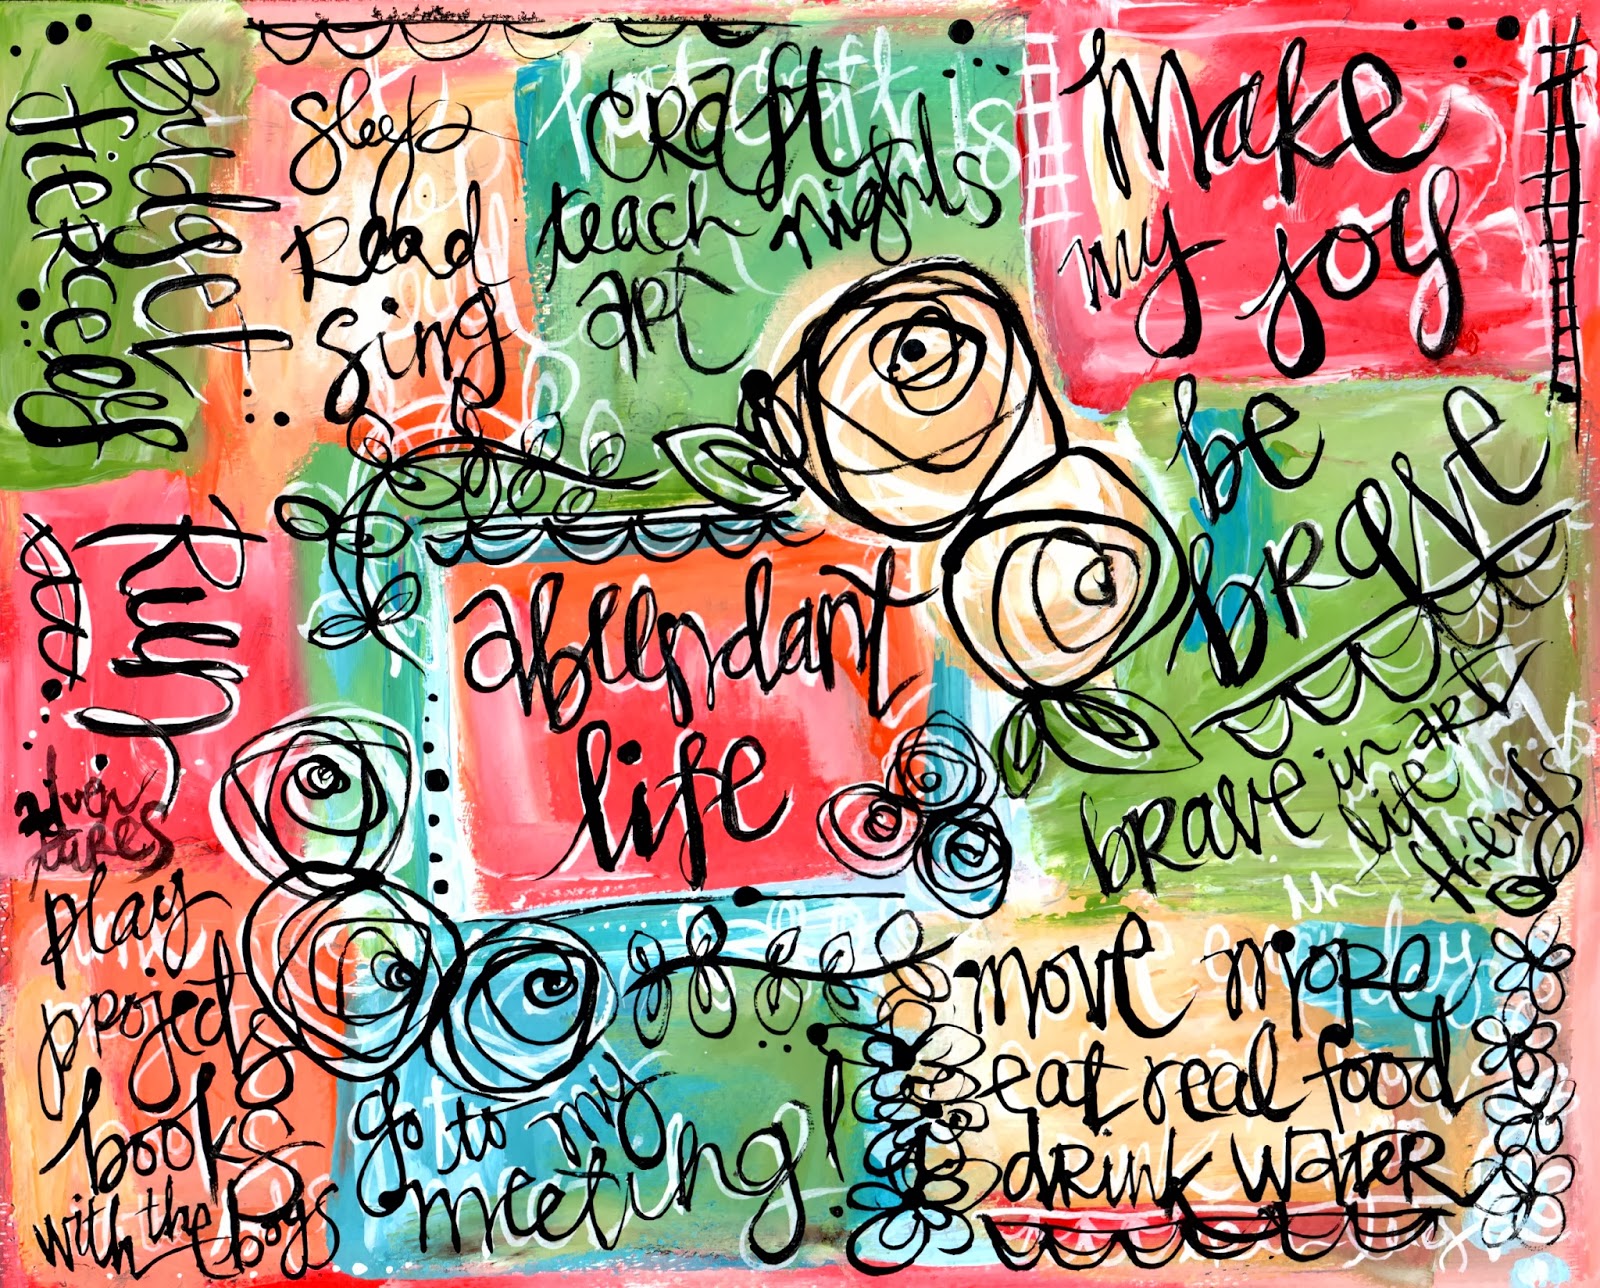 Budget
fiercely
sleep
Read
Sing
craft
nights
teach
art
Make
my joy
be
brave
brave in art
life
friends
abundant
life
Run
adven
tures
play
projects
books
with the boys
go to my
meeting!
move more
eat real food
drink water